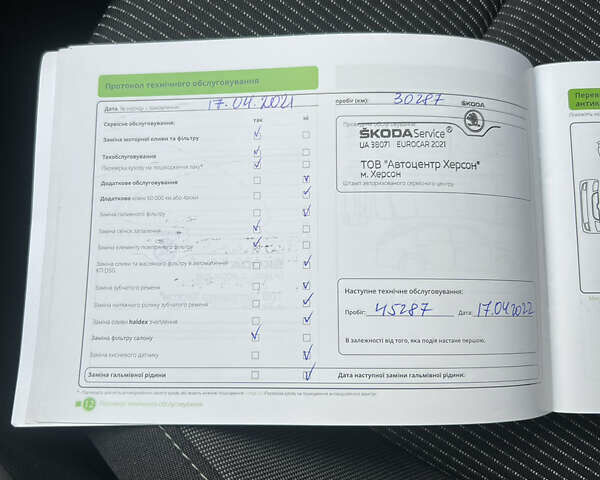 Протокол технічного обслуговування
Дата 17.04.2021
пробіг (км): 30287
ŠKODA
Сервісне обслуговування: так ні
Заміна моторної оливи та фільтру
Техобслуговування
Перевірка кузову на пошкодження лаку*
Додаткове обслуговування
Додаткове кожні 60 000 км або
Заміна паливного фільтру
Заміна свічок запалення
Заміна елементу повітряного фільтру
Заміна оливи та масляного фільтру в автоматичній
КП DSG
Заміна зубчатого ременя
Заміна натяжного ролику зубчатого ременя
Заміна оливи haldex зчеплення
Заміна фільтру салону
Заміна кисневого датчику
Заміна гальмівної рідини
ŠKODA Service®
UA 38071 EUROCAR 2021
ТОВ "Автоцентр Херсон"
м. Херсон
Штамп авторизованого сервісного центру
Наступне технічне обслуговування:
Пробіг: 45287 Дата: 17.04.2022
В залежності від того, яка подія настане першою.
Дата наступної заміни гальмівної рідини:
12 Протокол технічного обслуговування